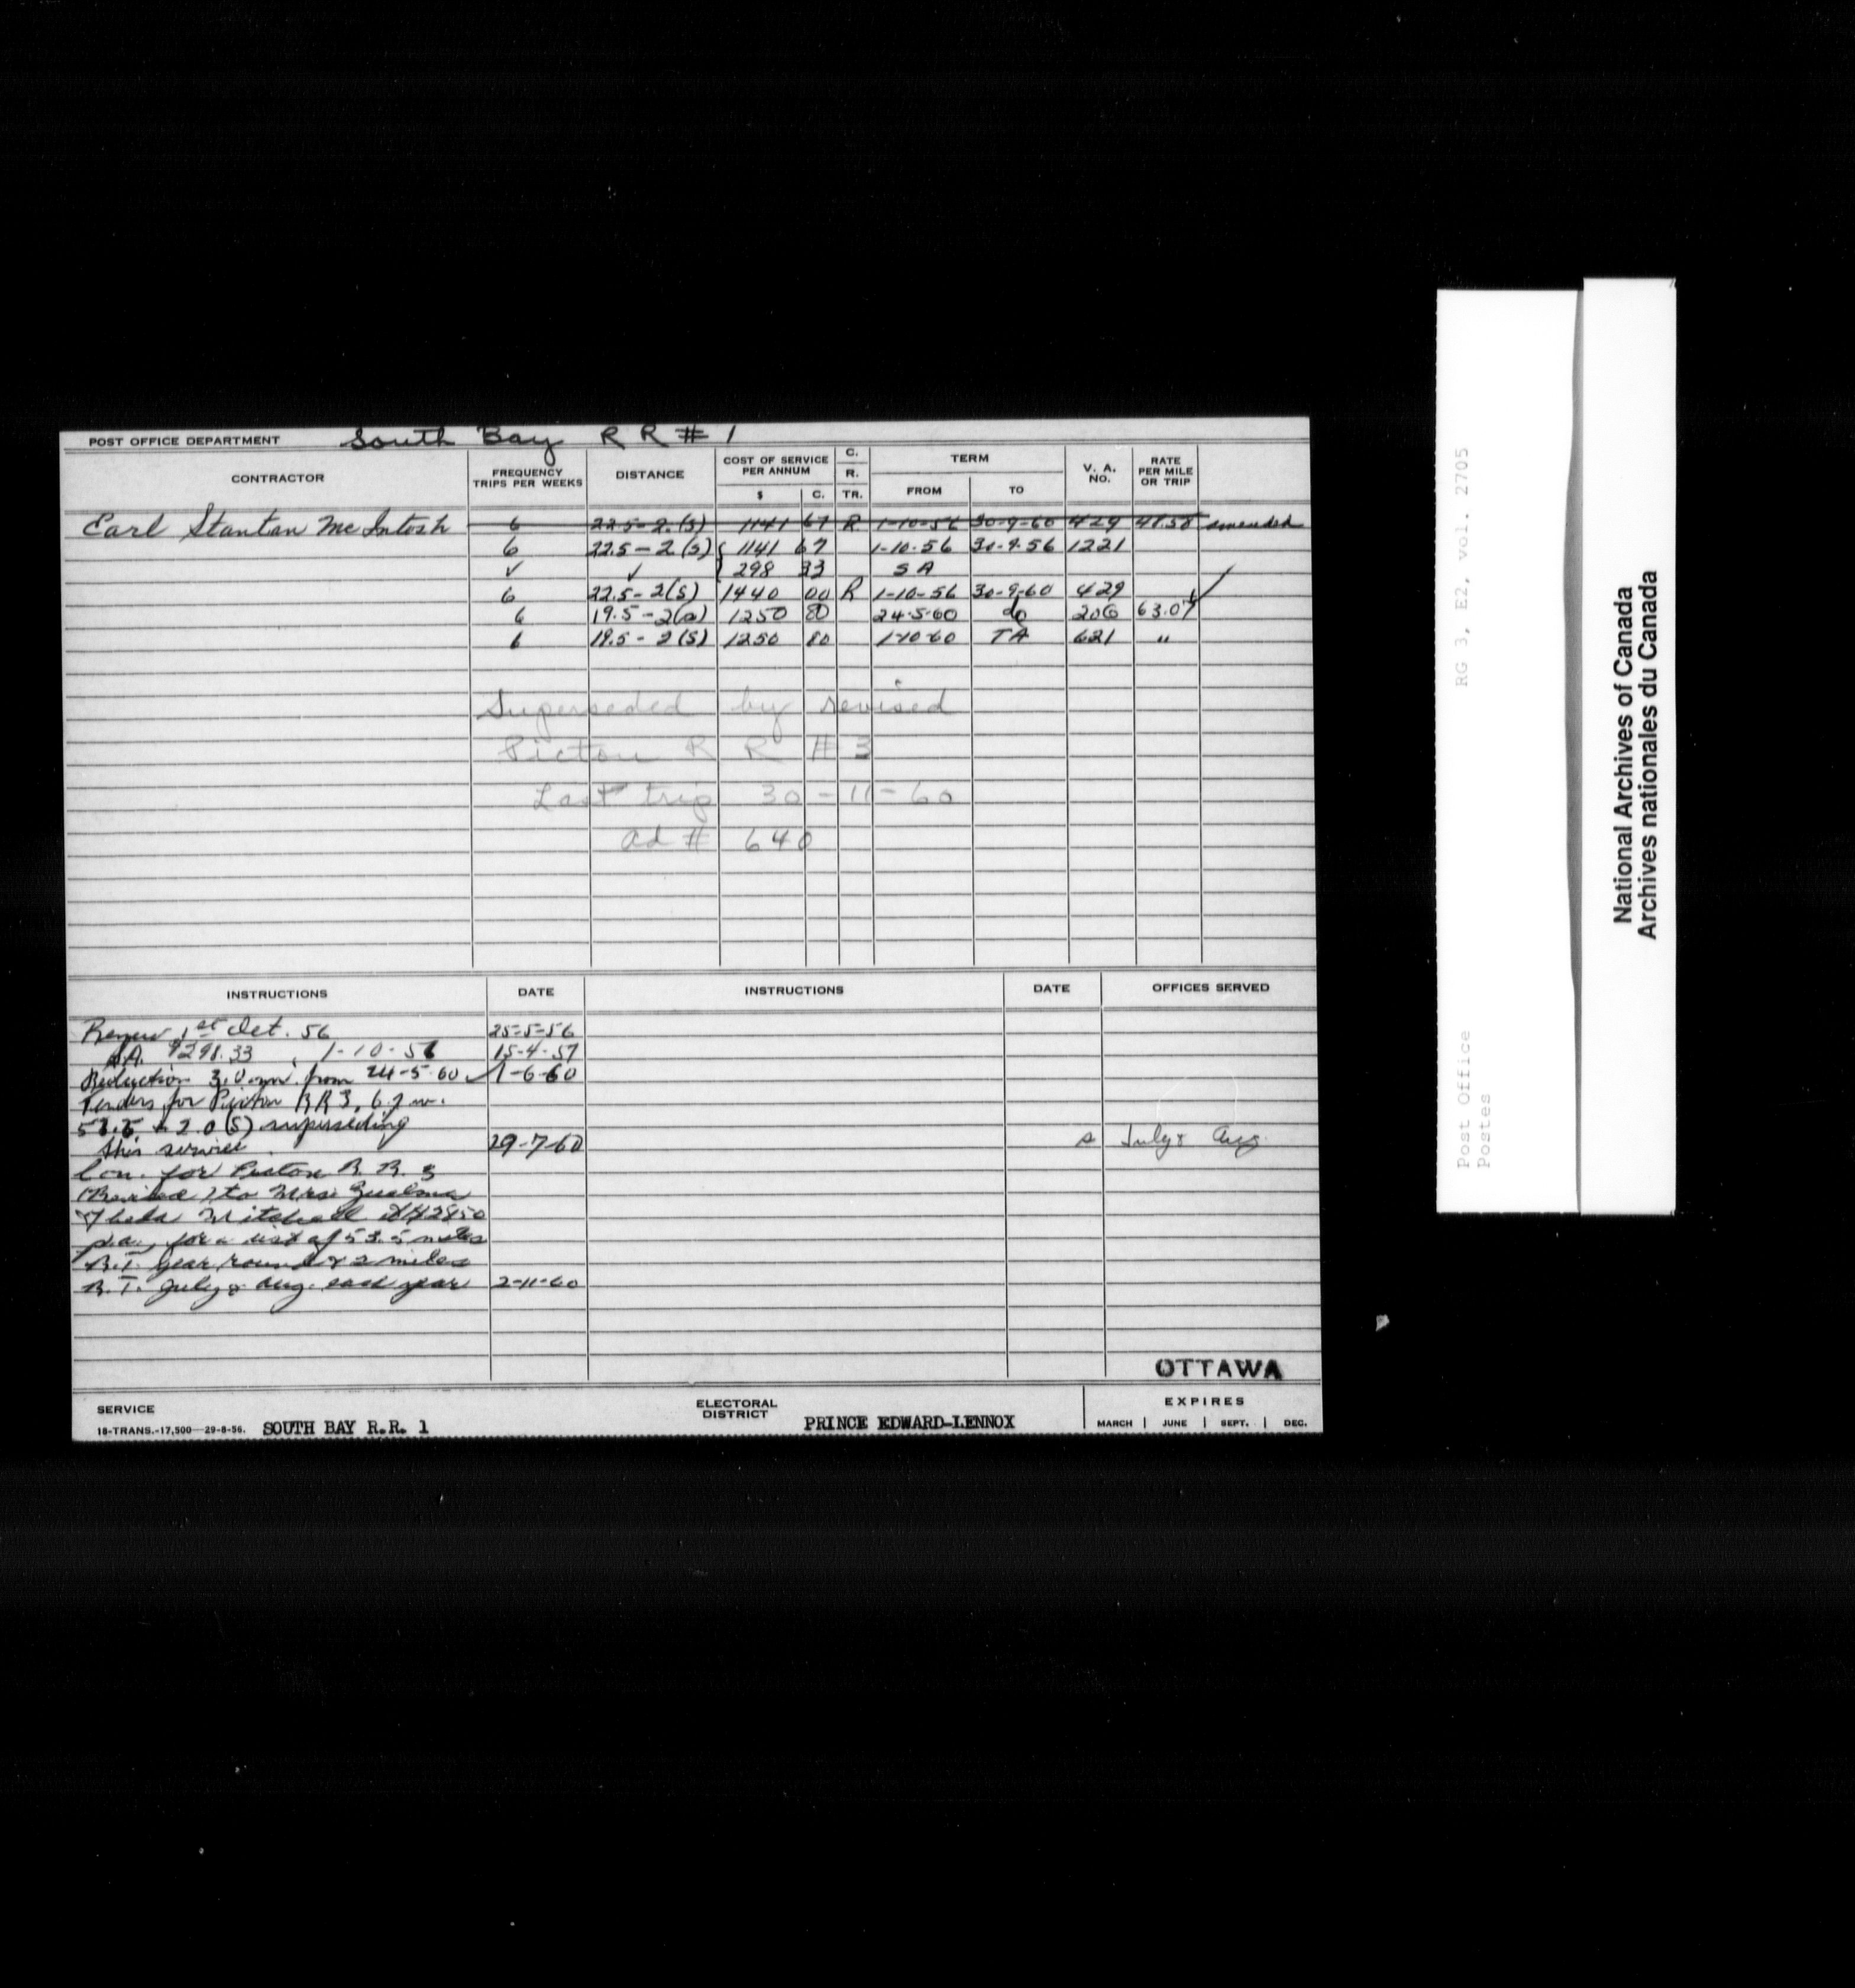 POST OFFICE DEPARTMENT South Bay R R # 1
CONTRACTOR FREQUENCY TRIPS PER WEEKS DISTANCE COST OF SERVICE PER ANNUM $ C. C. R. TR. TERM FROM TO V. A. NO. RATE PER MILE OR TRIP
Earl Stanton McIntosh 6 22.5-2.(s) 1141 67 R 1-10-56 30-9-60 429 47.58 amended
6 22.5-2(s) { 1141 67 1-10-56 30-9-56 1221
✓ ✓ 298 33 S A
6 22.5-2(s) 1440 00 R 1-10-56 30-9-60 429 ✓
6 19.5-2(s) 1250 80 24-5-60 do 206 63.07
6 19.5-2(s) 1250 80 1-10-60 TA 621 "
Superseded by revised
Picton R R # 3
Last trip 30-11-60
Ad # 640
INSTRUCTIONS DATE INSTRUCTIONS DATE OFFICES SERVED
Renew 1st Oct. 56 25-5-56
S.A. $298.33 , 1-10-56 15-4-57
Reduction 3.0 mi. from 24-5-60 ✓ 1-6-60
Tenders for Picton RR 3, 6
& 2.0 (S) superseding
this service. 29-7-60 s July & Aug.
Con. for Picton R. R. 3
(Revised) to Mrs.
Mitchell @ $2850
p.a., for a dist of 53.5 miles
R.T. year round & 2 miles
R.T. July & Aug. each year 2-11-60
OTTAWA
SERVICE ELECTORAL DISTRICT EXPIRES
18-TRANS.-17,500—29-8-56. SOUTH BAY R.R. 1 PRINCE EDWARD-LENNOX MARCH | JUNE | SEPT. | DEC.
RG 3, E2, vol. 2705
Post Office
Postes
National Archives of Canada
Archives nationales du Canada